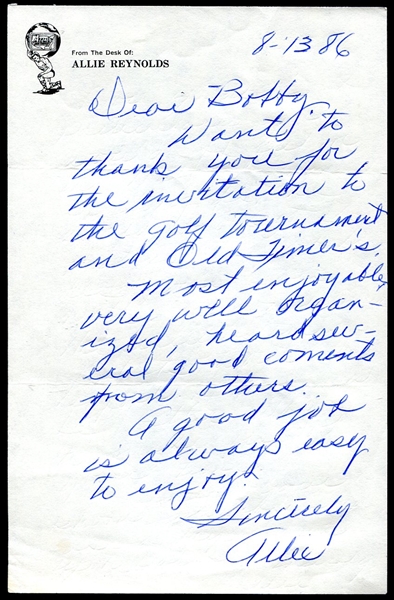 From The Desk Of:
ALLIE REYNOLDS
8-13 86
Dear Bobby,
Want to
thank you for
the invitation to
the golf tournament
and Old Timer's.
Most enjoyable,
very well organ-
ized, heard sev-
eral good coments
from others.
A good job
is always easy
to enjoy.
Sincerely
Allie